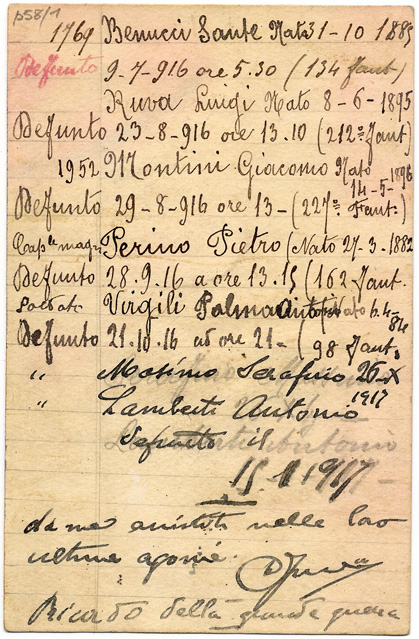 p58/1
1769 Benucci Sante Nato 31-10 1885
Defunto 9-7-916 ore 5.30 (134 fant.)
Ruva Luigi Nato 8-6-1895
Defunto 23-8-916 ore 13.10 (212° Fant)
1952 Montini Giacomo Nato 14-5-1896
Defunto 29-8-916 ore 13-(227° Fant.)
Cap.le magg. Perino Pietro (Nato 27-3-1882
Defunto 28.9.16 a ore 13.15 (162 Fant.
Soldato Virgili Palma Antonio Nato 6.4-84
Defunto 21.10.16 ad ore 21- (98 Fant.
" Masimo Serafino 26-X 1917
" Lamberti Antonio
Defunto il
15.1.1917-
da me assistiti nelle loro
ultime agonie.
Ricordo della grande guerra